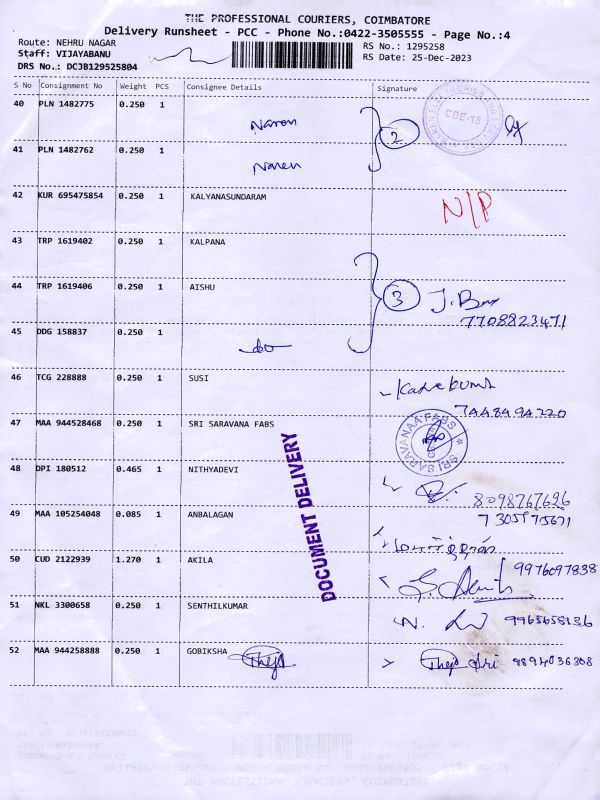 THE PROFESSIONAL COURIERS, COIMBATORE
Delivery Runsheet - PCC - Phone No.:0422-3505555 - Page No.:4
Route: NEHRU NAGAR
RS No.: 1295258
Staff: VIJAYABANU
RS Date: 25-Dec-2023
DRS No.: DCJB129525804
S No Consignment No Weight PCS Consignee Details Signature
40 PLN 1482775 0.250 1 Naren
CBE-18
2
41 PLN 1482762 0.250 1 Naren
42 KUR 695475854 0.250 1 KALYANASUNDARAM N/P
43 TRP 1619402 0.250 1 KALPANA
44 TRP 1619406 0.250 1 AISHU 3
7708823471
45 DDG 158837 0.250 1 do
46 TCG 228888 0.250 1 SUSI
7448494220
47 MAA 944528468 0.250 1 SRI SARAVANA FABS
SRI SARAVANAA FABS
48 DPI 180512 0.465 1 NITHYADEVI
8098767626
49 MAA 105254048 0.085 1 ANBALAGAN 7305975671
DOCUMENT DELIVERY
50 CUD 2122939 1.270 1 AKILA 9976097838
51 NKL 3300658 0.250 1 SENTHILKUMAR 9965658136
52 MAA 944258888 0.250 1 GOBIKSHA Thejo Thejo sri 9894036308